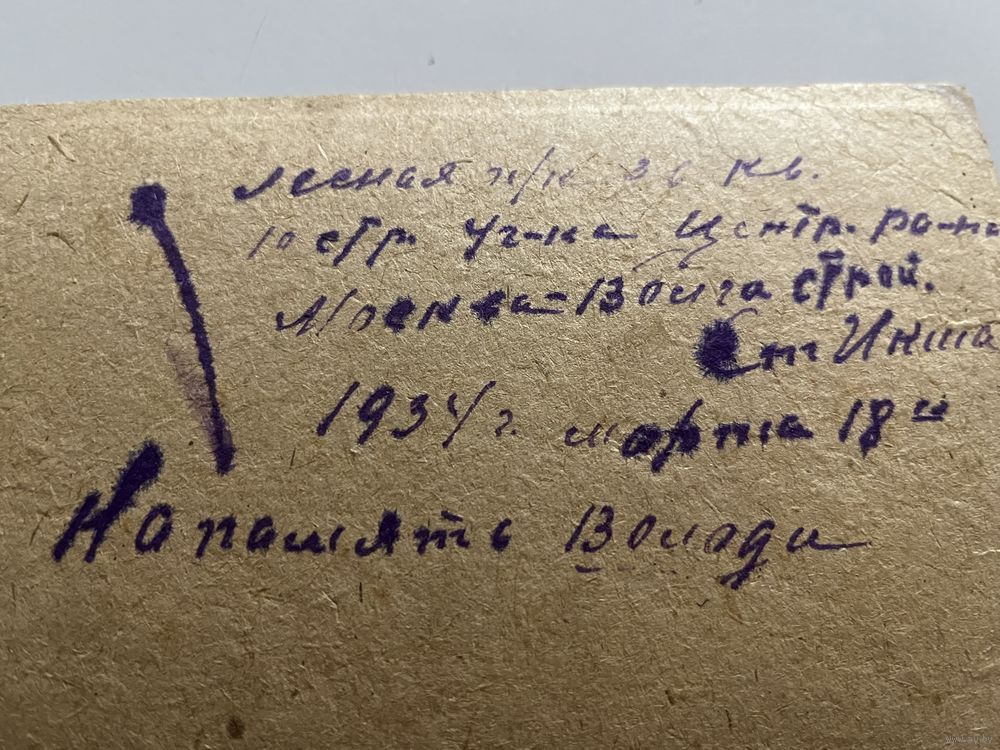 лесная п/п 36 кв.
10 стр. уч-ка Центр. ра-на
Москва-Волга строй.
Ст Икша
1934 г. марта 18 и
На память Володи